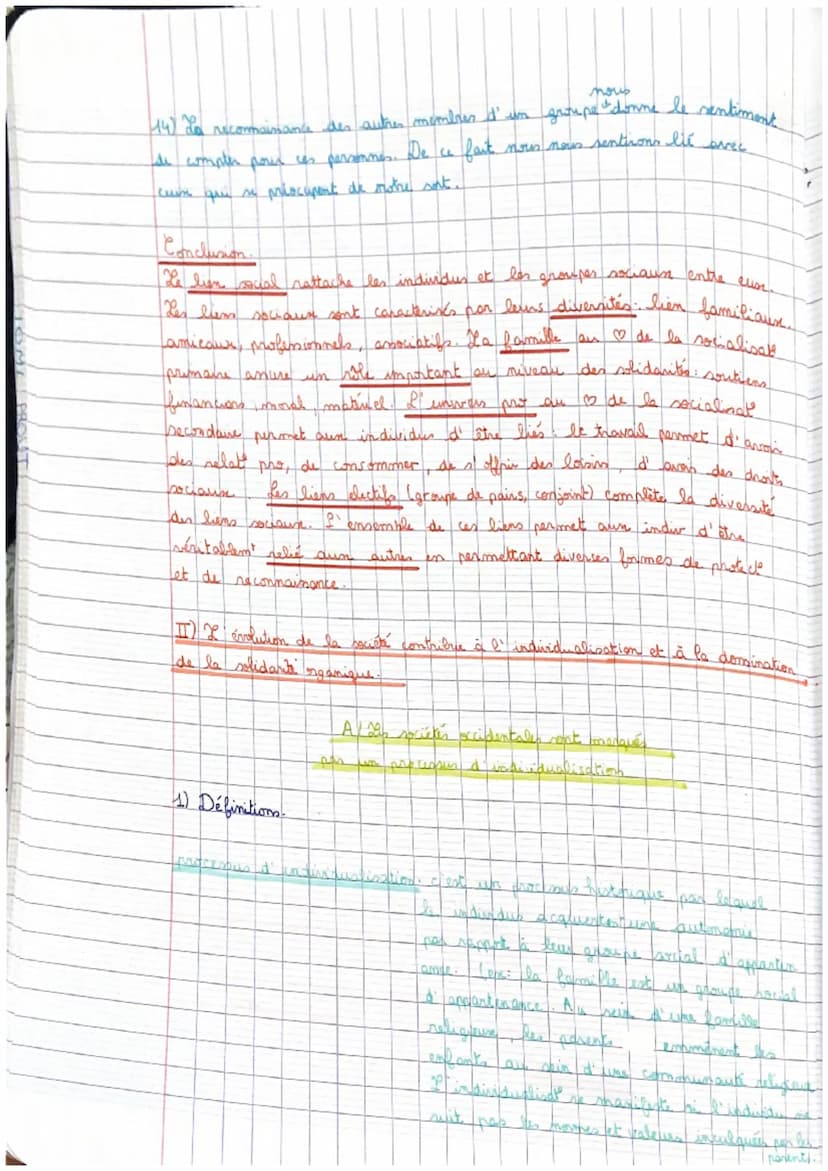 nous
14) La reconnaissance des autres membres d'un groupe donne le sentiment
de compter pour ces personnes. De ce fait nous nous sentirons lié avec
ceux qui se préocupent de notre sort.
Conclusion.
Le lien social rattache les individus et les groupes sociaux entre eux.
Les liens sociaux sont caractérisés par leurs diversités: lien familiaux,
amicaux, professionnels, associatifs. La famille au ♡ de la socialisat°
primaire assure un rôle important au niveau des solidarités: soutiens
financiers, moral, matériel. L'univers pro au ♡ de la socialisat°
secondaire permet aux individus d'être liés: le travail permet d'avoir
des relat° pro, de consommer, de s'offrir des loisirs, d'avoir des droits
sociaux. Les liens électifs (groupe de pairs, conjoint) complète la diversité
des liens sociaux. L'ensemble de ces liens permet aux indivs d'être
véritablemt relié aux autres en permettant diverses formes de protect°
et de reconnaissance.
II) L'évolution de la société contribue à l'individualisation et à la domination
de la solidarité organique.
A/ Les sociétés occidentales sont marqués
par un processus d'individualisation
1) Définitions.
processus d'individualisation: c'est un processus historique par lequel
les individus acquièrent une autonomie
par rapport à leur groupe social d'apparten
ance. (ex: la famille est un groupe social
d'appartenance. Au sein d'une famille
religieuse, les parents emmènent les
enfants au sein d'une communauté religieuse
L'individualisat° se manifeste si l'individu ne
suite pas les normes et valeurs inculquées par les
parents).
TOME PROUT